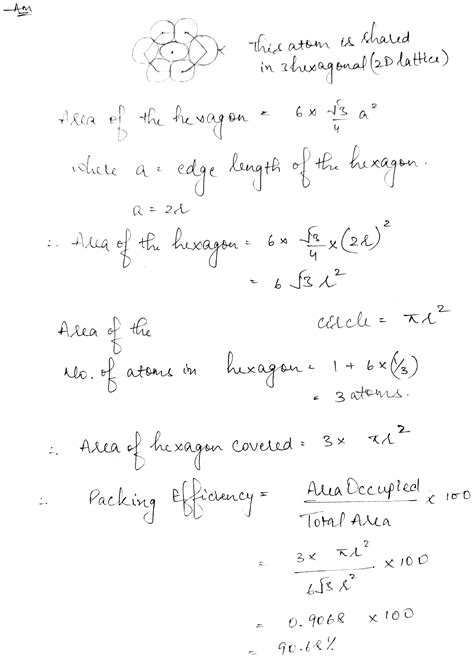 Am
This atom is shared
in 3 hexagonal (2D lattice)
Area of the hexagon = 6 × √3/4 a²
where a = edge length of the hexagon.
a = 2r
∴ Area of the hexagon = 6 × √3/4 × (2r)²
= 6√3 r²
Area of the circle = πr²
No. of atoms in hexagon = 1 + 6 × (1/3)
= 3 atoms.
∴ Area of hexagon covered = 3 × πr²
∴ Packing Efficiency = Area Occupied / Total Area × 100
= 3 × πr² / 6√3 r² × 100
= 0.9068 × 100
= 90.68%